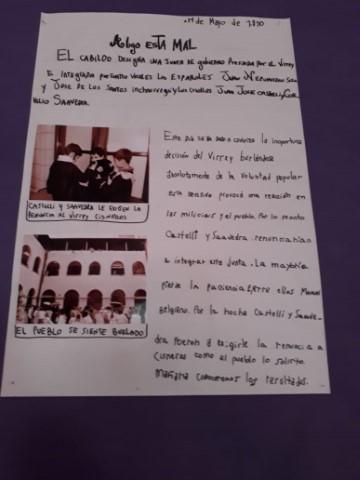 24 de Mayo de 1810
Algo ESTÁ MAL
EL CABILDO DESIGNA UNA JUNTA DE gobierno Presidida por EL Virrey
E integrada por cuatro Vocales los ESPAÑOLES Juan Nepomuceno Sola
y Jose DE Los Santos inchaurregui y los criollos Juan Jose castelli y Cor
nelio SAAVEDRA.
CASTELLI Y SAAVEDRA LE EXIGEN LA
RENUNCIA AL VIRREY CISNEROS
EL PUEBLO SE SIENTE BURLADO
Este día se ha dado a conocer la inoportuna
decisión del Virrey burlándose
absolutamente de la voluntad popular
esta decisión provocó una reacción en
las milicias y el pueblo. Por lo pronto
Castelli y Saavedra renunciarían
a integrar esta Junta. La mayoría
pierde la paciencia, Entre ellos Manuel
belgrano. Por la noche Castelli y Saave-
dra fueron a exigirle la renuncia a
Cisneros como el pueblo lo solicito.
Mañana conoceremos los resultados.